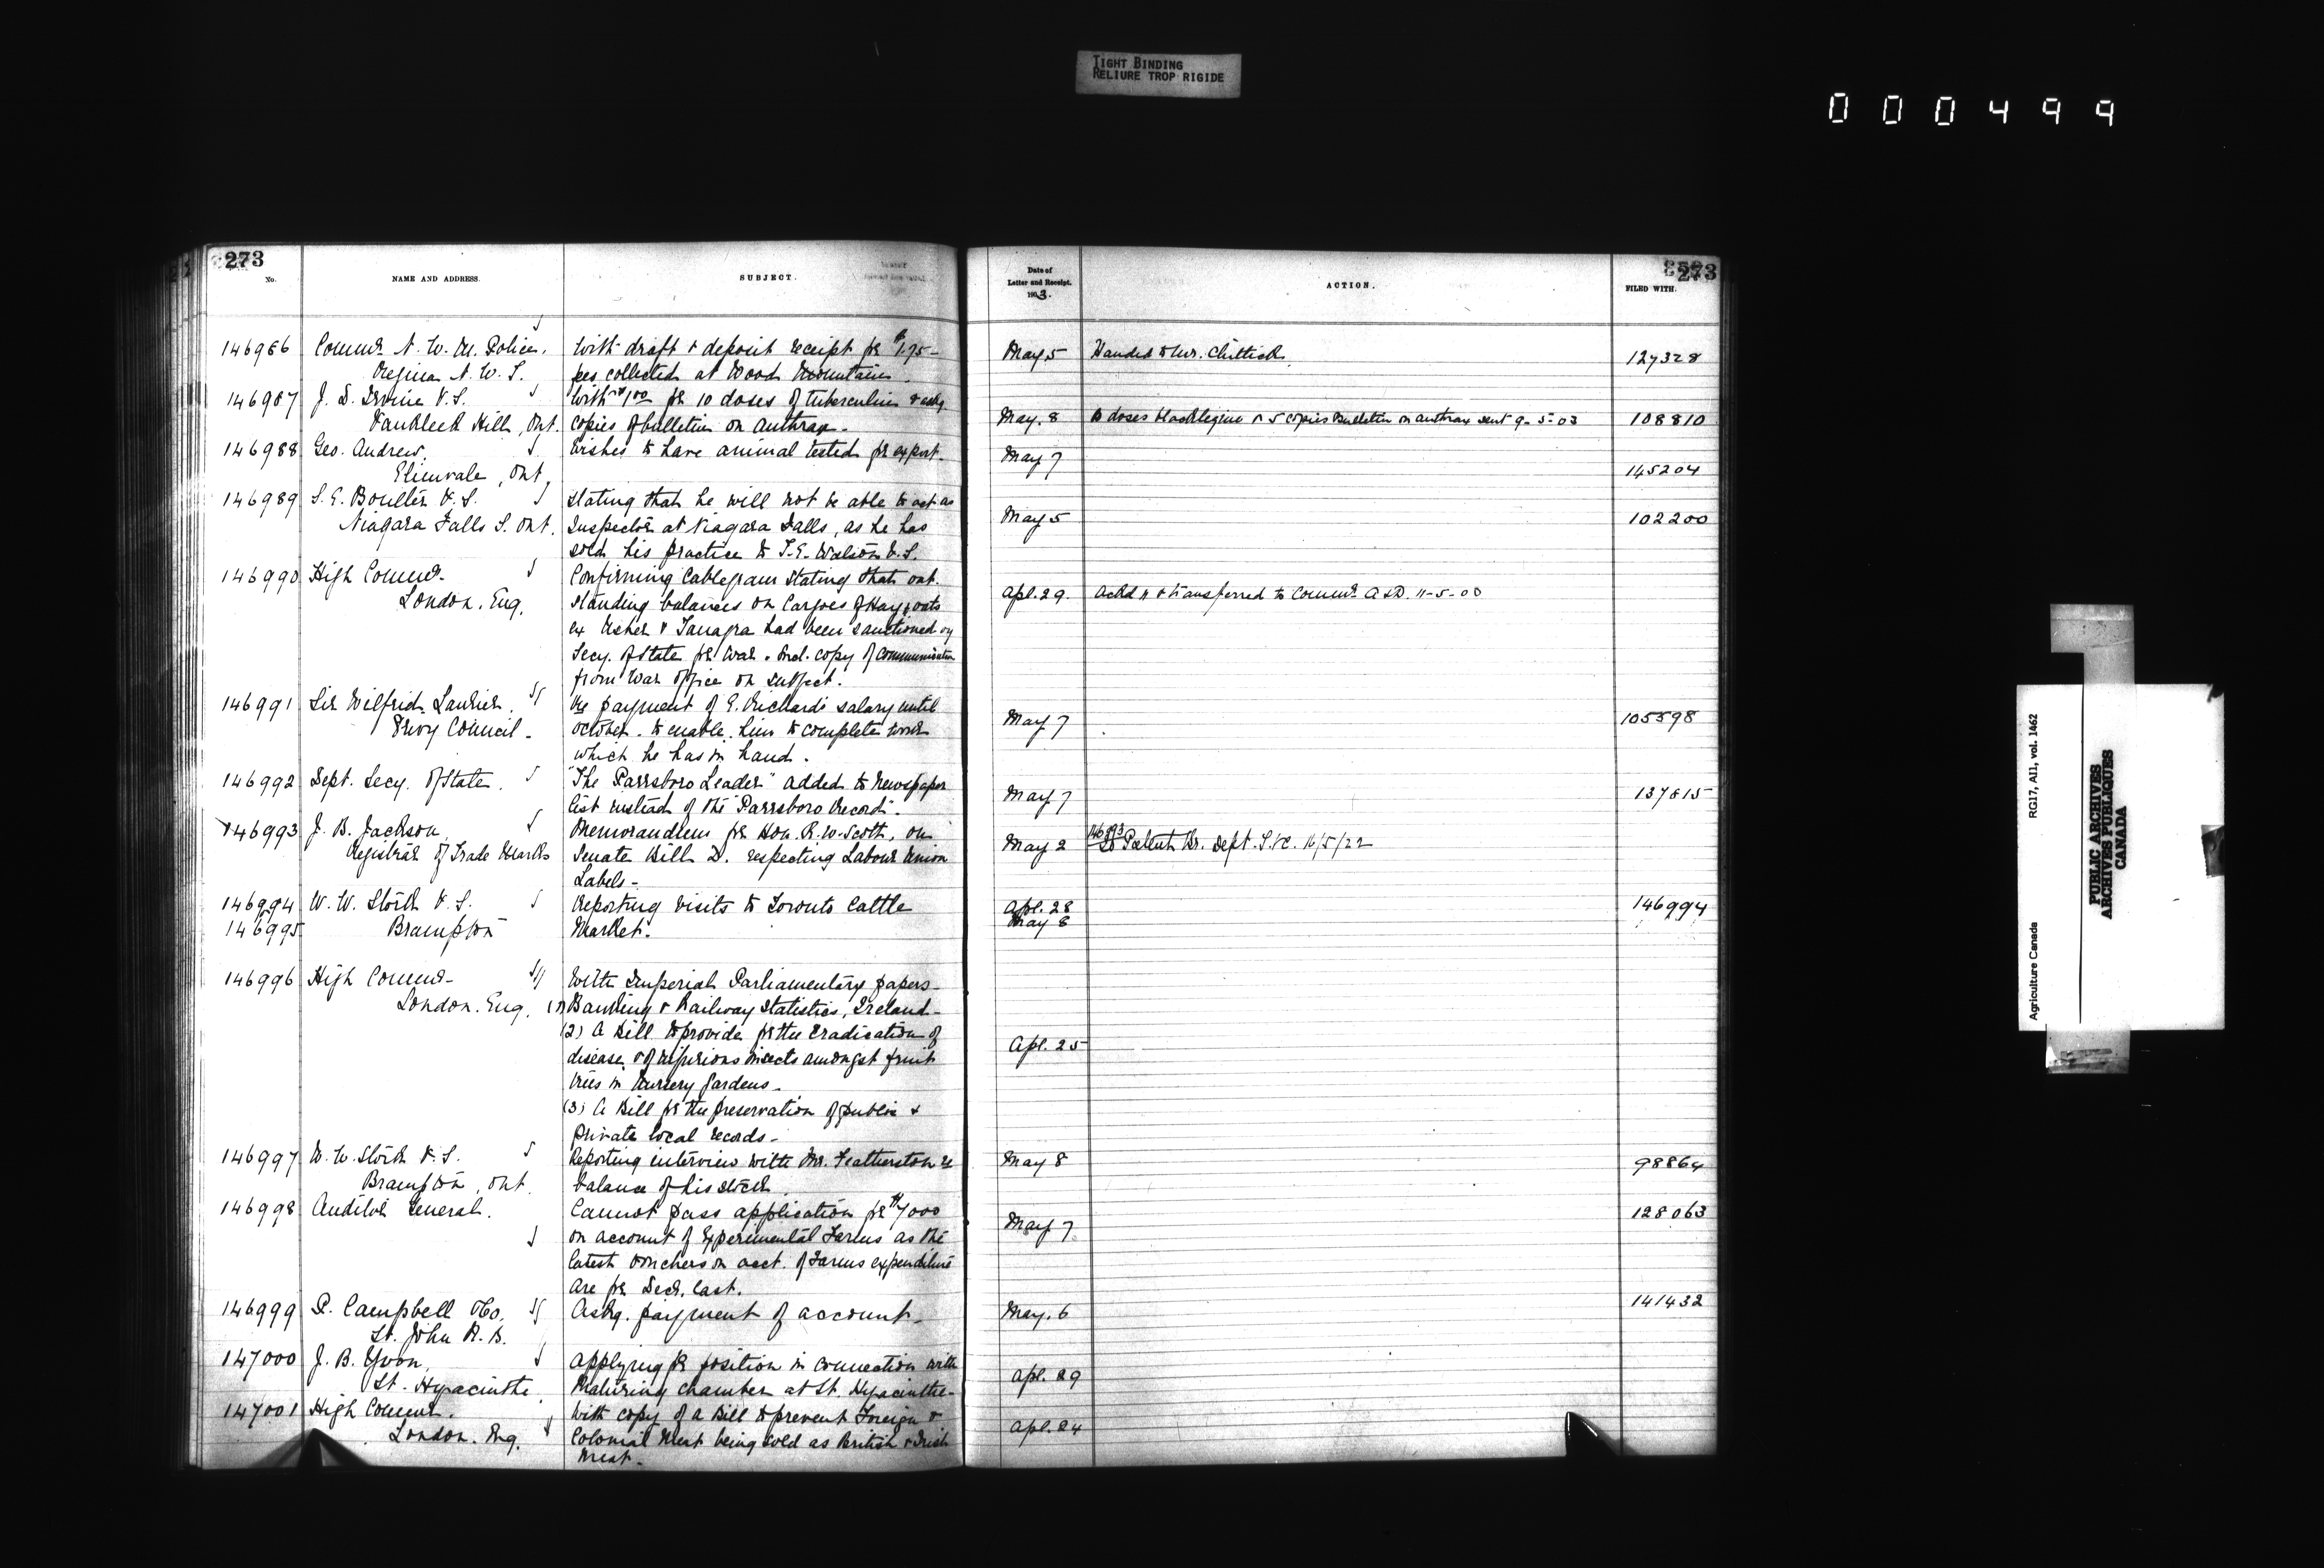 TIGHT BINDING
RELIURE TROP RIGIDE
000499
273
No.
NAME AND ADDRESS.
SUBJECT.
Date of
Letter and Receipt.
1903.
ACTION.
FILED WITH.
273
146986 Commr N. W. M. Police. With draft & deposit receipt for $1.75- May 5 Handed to Mr. Chittick 127328
Regina N. W. T. fees collected at Wood Mountain.
146987 J. D. Irvine V.S. With $1.00 for 10 doses of tuberculin & askg
Vankleek Hill, Ont. copies of bulletin on anthrax- May. 8 10 doses blacklegine & 5 copies Bulletin on anthrax sent 9-5-03 108810
146988 Geo. Andrew. Wishes to have animal tested for export. May 7
Elmvale, Ont, 145204
146989 S. E. Boulter V.S. Stating that he will not be able to act as
Niagara Falls S. Ont. Inspector at Niagara Falls, as he has May 5 102200
sold his practice to T. E. Watson V.S.
146990 High Commr- Confirming Cablegram stating that out-
London. Eng. standing balances on Cargoes of Hay & oats Apl. 29. Ackd & transferred to Commr A & D. 11-5-03
ex Usher & Tanagra had been sanctioned by
Secy. of State for War. Incl. copy of communication
from War Office on subject.
146991 Sir Wilfrid Laurier. Re payment of E. Richard's salary until
Privy Council- October. to enable him to complete work May 7 105598
which he has in hand.
146992 Dept. Secy. of State. "The Parrsboro Leader" added to newspaper May 7 137815
list instead of the "Parrsboro Record".
146993 J. B. Jackson Memorandum for Hon. R. W. Scott, on 146993
Registrar of Trade Marks Senate Bill D. respecting Labour Union May 2 to Patent Br. Dept. S. 16/5/22
Labels-
146994 W. W. Stork V.S. Reporting visits to Toronto Cattle Apl. 28 146994
146995 Brampton Market. May 8
146996 High Commr- With Imperial Parliamentary papers-
London. Eng. (1) Banking & Railway Statistics, Ireland-
(2) A Bill to provide for the Eradication of
disease & of injurious insects amongst fruit Apl. 25
trees in nursery gardens-
(3) A Bill for the preservation of public &
private local records-
146997 W. W. Stork V.S. Reporting interview with Mr. Featherston re May 8 98864
Brampton, Ont. balance of his stock.
146998 Auditor General. Cannot pass application for $7000 May 7 128063
on account of Experimental Farms as the
latest vouchers on acct. of Farms expenditure
are for Decr. last.
146999 P. Campbell & Co. Askg. payment of account- May. 6 141432
St. John N. B.
147000 J. B. Yvon, Applying for position in connection with
St. Hyacinthe. Maturing chamber at St. Hyacinthe- Apl. 29
147001 High Commr. With copy of a Bill to prevent Foreign &
London. Eng. Colonial Meat being sold as British & Irish Apl. 24
Meat-
Agriculture Canada RG17, AII, vol. 1462
PUBLIC ARCHIVES
ARCHIVES PUBLIQUES
CANADA